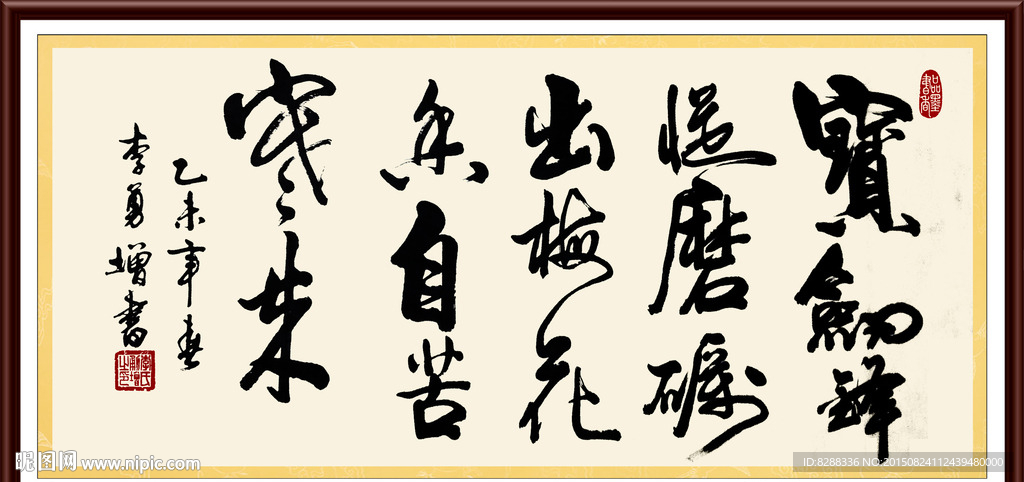 寶劒鋒
從磨礪
出梅花
香自苦
寒来
乙未年春
李勇增書
昵图网 www.nipic.com
ID:8288336 NO:20150824112439480000